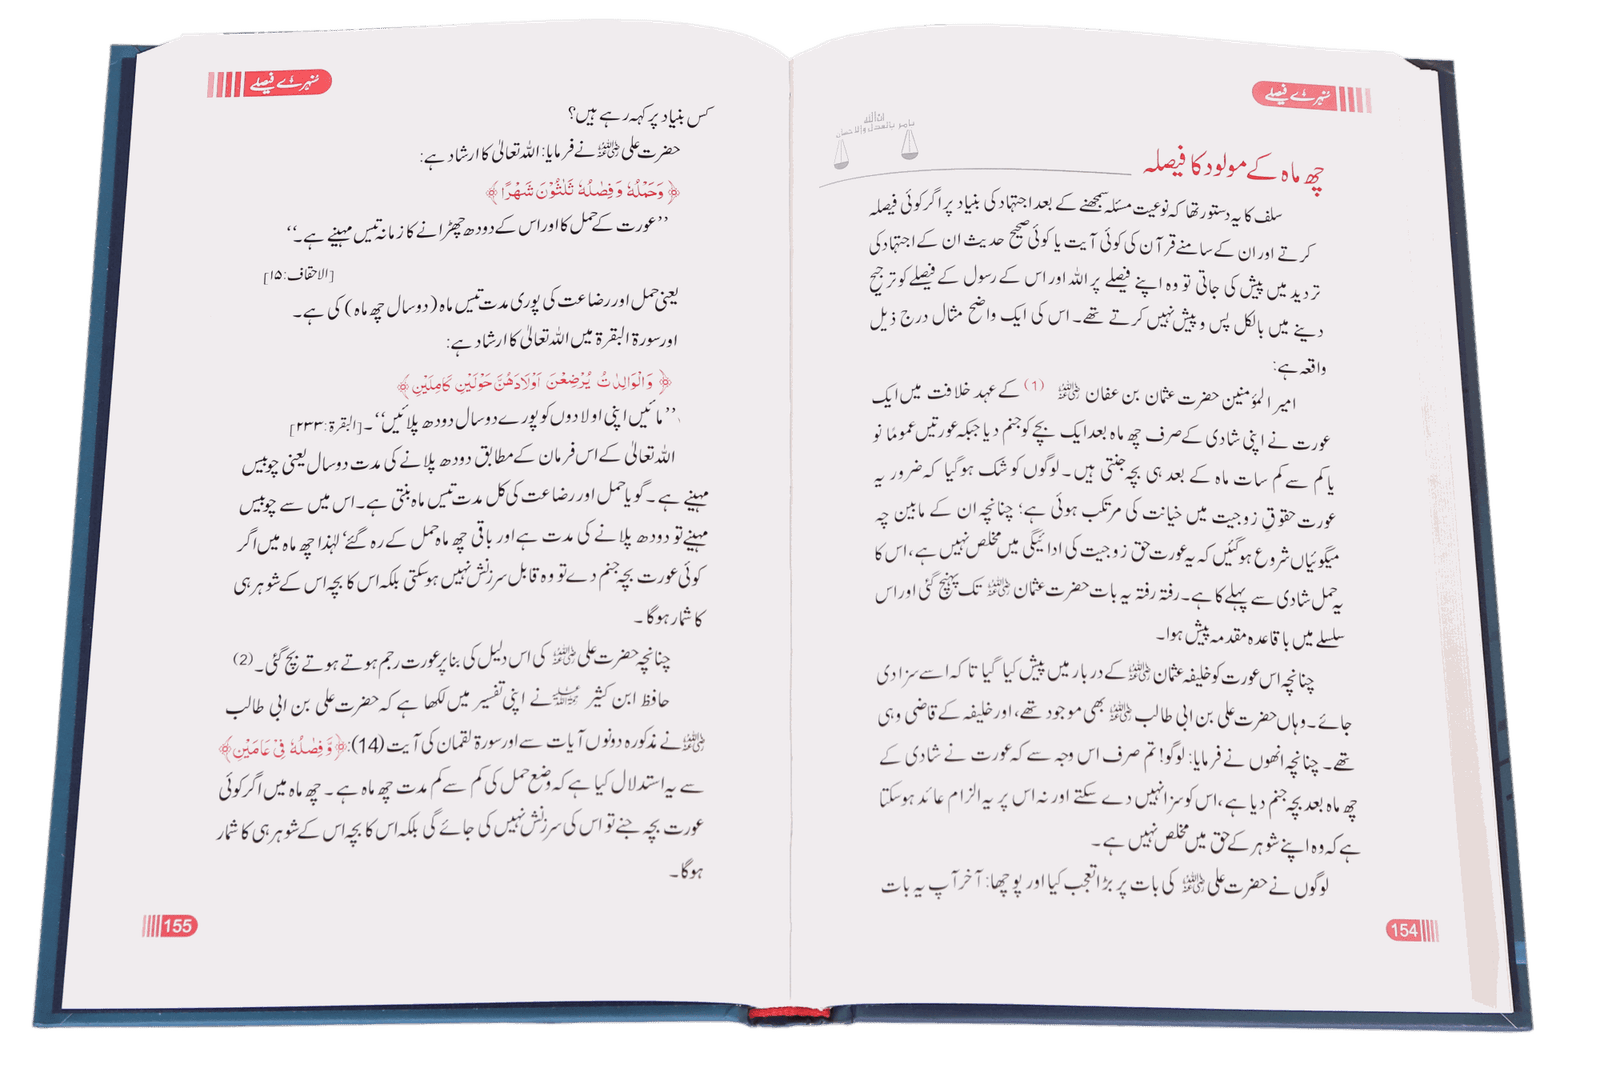 سنہرے فیصلے
ان اللہ
یامر بالعدل والاحسان
چھ ماہ کے مولود کا فیصلہ
سلف کا یہ دستور تھا کہ نوعیت مسئلہ سمجھنے کے بعد اجتہاد کی بنیاد پر اگر کوئی فیصلہ
کرتے اور ان کے سامنے قرآن کی کوئی آیت یا کوئی صحیح حدیث ان کے اجتہاد کی
تردید میں پیش کی جاتی تو وہ اپنے فیصلے پر اللہ اور اس کے رسول کے فیصلے کو ترجیح
دینے میں بالکل پس و پیش نہیں کرتے تھے۔ اس کی ایک واضح مثال درج ذیل
واقعہ ہے:
امیر المؤمنین حضرت عثمان بن عفان رضی اللہ عنہ (1) کے عہد خلافت میں ایک
عورت نے اپنی شادی کے صرف چھ ماہ بعد ایک بچے کو جنم دیا جبکہ عورتیں عموماً نو
یا کم سے کم سات ماہ کے بعد ہی بچہ جنتی ہیں۔ لوگوں کو شک ہوگیا کہ ضرور یہ
عورت حقوقِ زوجیت میں خیانت کی مرتکب ہوئی ہے؛ چنانچہ ان کے مابین چہ
میگوئیاں شروع ہوگئیں کہ یہ عورت حق زوجیت کی ادائیگی میں مخلص نہیں ہے، اس کا
یہ حمل شادی سے پہلے کا ہے۔ رفتہ رفتہ یہ بات حضرت عثمان رضی اللہ عنہ تک پہنچ گئی اور اس
سلسلے میں باقاعدہ مقدمہ پیش ہوا۔
چنانچہ اس عورت کو خلیفہ عثمان رضی اللہ عنہ کے دربار میں پیش کیا گیا تاکہ اسے سزا دی
جائے۔ وہاں حضرت علی بن ابی طالب رضی اللہ عنہ بھی موجود تھے، اور خلیفہ کے قاضی وہی
تھے۔ چنانچہ انھوں نے فرمایا: لوگو! تم صرف اس وجہ سے کہ عورت نے شادی کے
چھ ماہ بعد بچہ جنم دیا ہے، اس کو سزا نہیں دے سکتے اور نہ اس پر یہ الزام عائد ہوسکتا
ہے کہ وہ اپنے شوہر کے حق میں مخلص نہیں ہے۔
لوگوں نے حضرت علی رضی اللہ عنہ کی بات پر بڑا تعجب کیا اور پوچھا: آخر آپ یہ بات
154
سنہرے فیصلے
کس بنیاد پر کہہ رہے ہیں؟
حضرت علی رضی اللہ عنہ نے فرمایا: اللہ تعالیٰ کا ارشاد ہے:
﴿ وَحَمْلُهٗ وَفِصٰلُهٗ ثَلٰثُوْنَ شَهْرًا ﴾
’’عورت کے حمل کا اور اس کے دودھ چھڑانے کا زمانہ تیس مہینے ہے۔‘‘
[الاحقاف:۱۵]
یعنی حمل اور رضاعت کی پوری مدت تیس ماہ (دو سال چھ ماہ) کی ہے۔
اور سورۃ البقرۃ میں اللہ تعالیٰ کا ارشاد ہے:
﴿ وَالْوَالِدٰتُ يُرْضِعْنَ اَوْلَادَهُنَّ حَوْلَيْنِ كَامِلَيْنِ ﴾
’’مائیں اپنی اولادوں کو پورے دو سال دودھ پلائیں‘‘۔ [البقرۃ:۲۳۳]
اللہ تعالیٰ کے اس فرمان کے مطابق دودھ پلانے کی مدت دو سال یعنی چوبیس
مہینے ہے۔ گویا حمل اور رضاعت کی کل مدت تیس ماہ بنتی ہے۔ اس میں سے چوبیس
مہینے تو دودھ پلانے کی مدت ہے اور باقی چھ ماہ حمل کے رہ گئے‘ لہٰذا چھ ماہ میں اگر
کوئی عورت بچہ جنم دے تو وہ قابل سرزنش نہیں ہوسکتی بلکہ اس کا بچہ اس کے شوہر ہی
کا شمار ہوگا۔
چنانچہ حضرت علی رضی اللہ عنہ کی اس دلیل کی بنا پر عورت رجم ہوتے ہوتے بچ گئی۔ (2)
حافظ ابن کثیر رحمۃ اللہ علیہ نے اپنی تفسیر میں لکھا ہے کہ حضرت علی بن ابی طالب
رضی اللہ عنہ نے مذکورہ دونوں آیات سے اور سورۃ لقمان کی آیت (14): ﴿ وَّفِصٰلُهٗ فِيْ عَامَيْنِ ﴾
سے یہ استدلال کیا ہے کہ وضع حمل کی کم سے کم مدت چھ ماہ ہے۔ چھ ماہ میں اگر کوئی
عورت بچہ جنے تو اس کی سرزنش نہیں کی جائے گی بلکہ اس کا بچہ اس کے شوہر ہی کا شمار
ہوگا۔
155